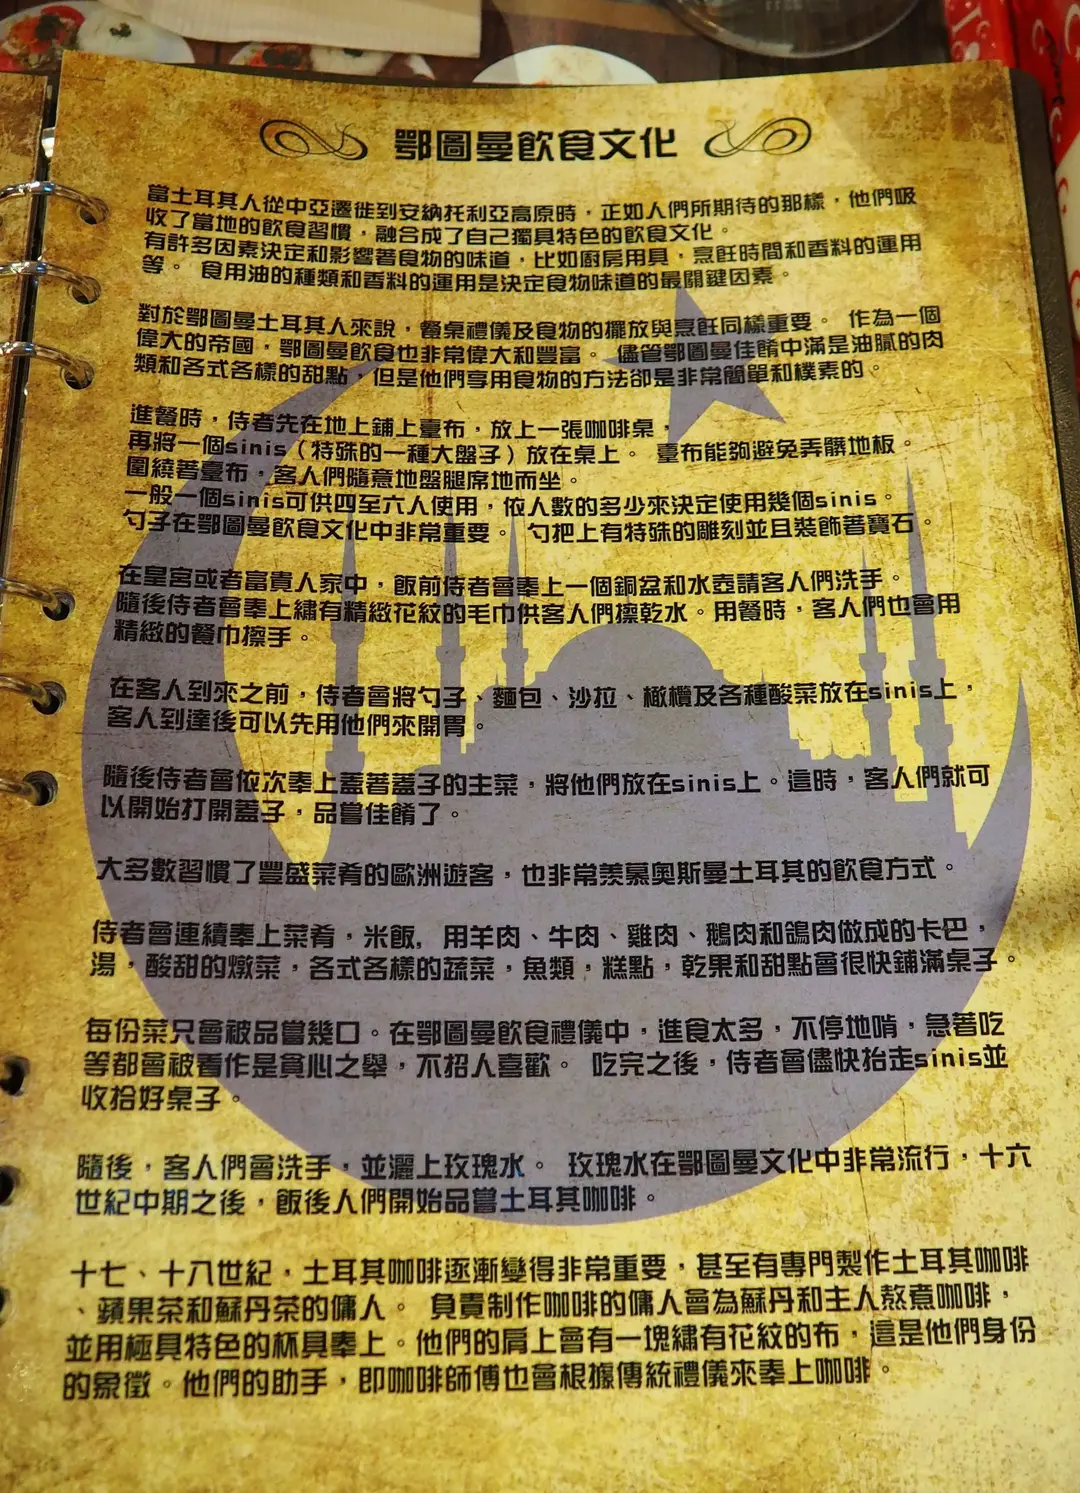 鄂圖曼飲食文化
當土耳其人從中亞遷徙到安納托利亞高原時，正如人們所期待的那樣，他們吸
收了當地的飲食習慣，融合成了自己獨具特色的飲食文化。
有許多因素決定和影響著食物的味道，比如廚房用具，烹飪時間和香料的運用
等。 食用油的種類和香料的運用是決定食物味道的最關鍵因素。
對於鄂圖曼土耳其人來說，餐桌禮儀及食物的擺放與烹飪同樣重要。 作為一個
偉大的帝國，鄂圖曼飲食也非常偉大和豐富。 儘管鄂圖曼佳餚中滿是油膩的肉
類和各式各樣的甜點，但是他們享用食物的方法卻是非常簡單和樸素的。
進餐時，侍者先在地上鋪上臺布，放上一張咖啡桌，
再將一個sinis（特殊的一種大盤子）放在桌上。 臺布能夠避免弄髒地板。
圍繞著臺布，客人們隨意地盤腿席地而坐。
一般一個sinis可供四至六人使用，依人數的多少來決定使用幾個sinis。
勺子在鄂圖曼飲食文化中非常重要。 勺把上有特殊的雕刻並且裝飾著寶石。
在皇宮或者富貴人家中，飯前侍者會奉上一個銅盆和水壺請客人們洗手。
隨後侍者會奉上繡有精緻花紋的毛巾供客人們擦乾水。用餐時，客人們也會用
精緻的餐巾擦手。
在客人到來之前，侍者會將勺子、麵包、沙拉、橄欖及各種酸菜放在sinis上，
客人到達後可以先用他們來開胃。
隨後侍者會依次奉上蓋著蓋子的主菜，將他們放在sinis上。這時，客人們就可
以開始打開蓋子，品嘗佳餚了。
大多數習慣了豐盛菜肴的歐洲遊客，也非常羨慕奧斯曼土耳其的飲食方式。
侍者會連續奉上菜肴，米飯, 用羊肉、牛肉、雞肉、鵝肉和鴿肉做成的卡巴，
湯，酸甜的燉菜，各式各樣的蔬菜，魚類，糕點，乾果和甜點會很快鋪滿桌子。
每份菜只會被品嘗幾口。在鄂圖曼飲食禮儀中，進食太多，不停地啃，急著吃
等都會被看作是貪心之舉，不招人喜歡。 吃完之後，侍者會儘快抬走sinis並
收拾好桌子。
隨後，客人們會洗手，並灑上玫瑰水。 玫瑰水在鄂圖曼文化中非常流行，十六
世紀中期之後，飯後人們開始品嘗土耳其咖啡。
十七、十八世紀，土耳其咖啡逐漸變得非常重要，甚至有專門製作土耳其咖啡
、蘋果茶和蘇丹茶的傭人。 負責制作咖啡的傭人會為蘇丹和主人熬煮咖啡，
並用極具特色的杯具奉上。他們的肩上會有一塊繡有花紋的布，這是他們身份
的象徵。他們的助手，即咖啡師傅也會根據傳統禮儀來奉上咖啡。